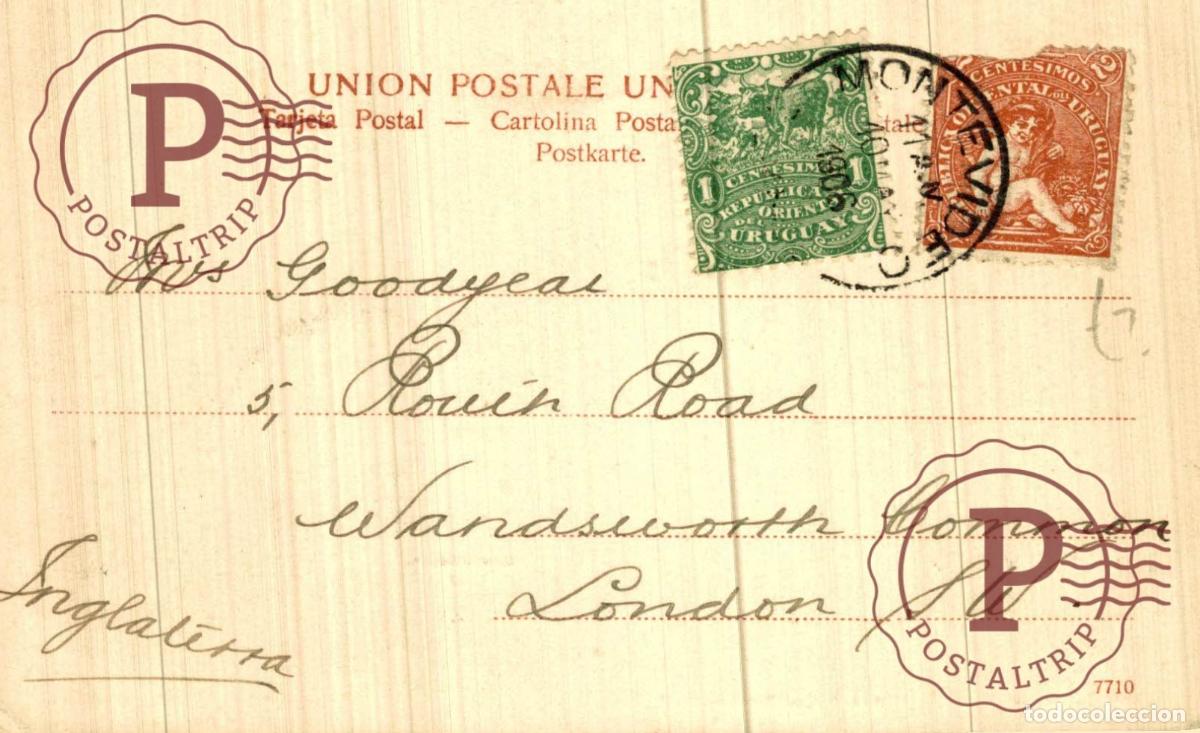 UNION POSTALE UN
Tarjeta Postal — Cartolina Posta
Postkarte.
1 CENTESIMO 1
REPUBLICA
ORIENTAL
DEL
URUGUAY
2 CENTESIMOS 2
REPUBLICA ORIENTAL DEL URUGUAY
MONTEVIDEO
1906
P
POSTALTRIP
Mrs Goodyear
5, Rouen Road
Wandsworth Common
London SW
Inglaterra
P
POSTALTRIP
7710
todocoleccion